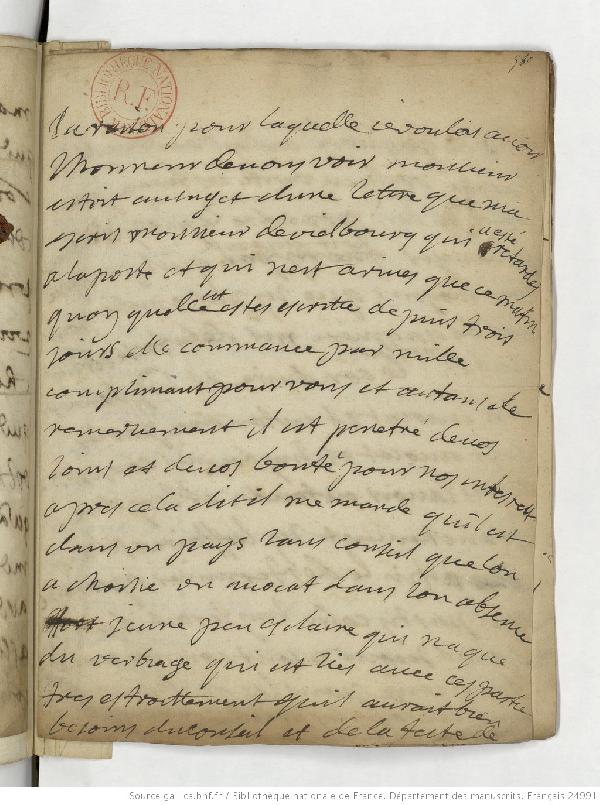 580
BIBLIOTHEQUE NATIONALE
R.F.
La raison pour laquelle je voulois avoir
lhonneur de vous voir monsieur
estoit au sujet dune letre que ma
escrit monsieur de vielbourg qui a esté retardes
a la poste et qui nest arivee que ce matin
quoy quelle eut estes escritte depuis trois
jours elle commance par mille
complimant pour vous et autans de
remersiement il est penetré de vos
soins et de vos bonté pour nos interest
apres cela dit il me mande quil est
dans un pays sans conseil que lon
a choisie un avocat dans son absense
jeune peu esclaire qui na que
du verbiage qui est lies avec ces partie
tres estroittement quil auroit bien
besoins du conseil et de la teste de
Source gallica.bnf.fr / Bibliothèque nationale de France. Département des manuscrits. Français 24991